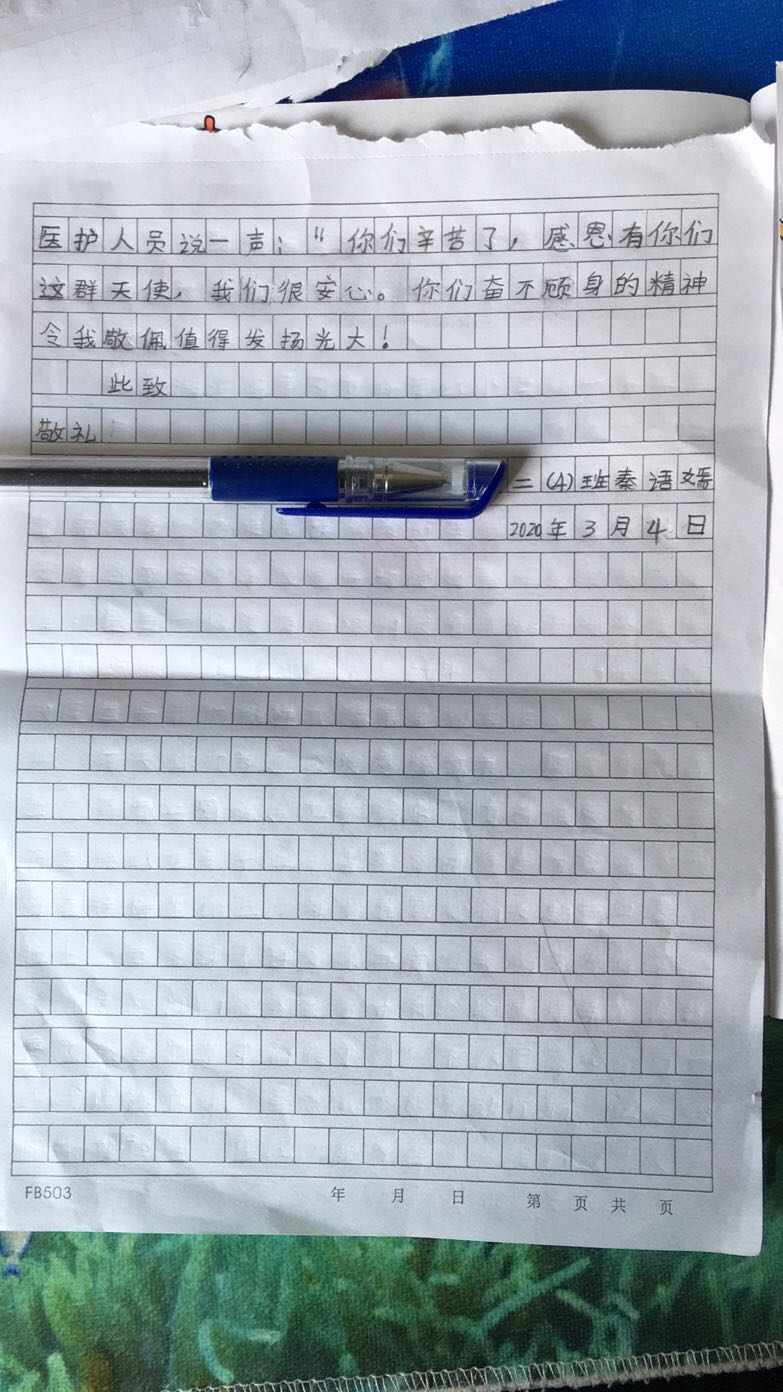 医护人员说一声：“你们辛苦了，感恩有你们
这群天使，我们很安心。你们奋不顾身的精神
令我敬佩值得发扬光大！
此致
敬礼
二(4)班秦语嫣
2020年3月4日
FB503 年 月 日 第 页 共 页